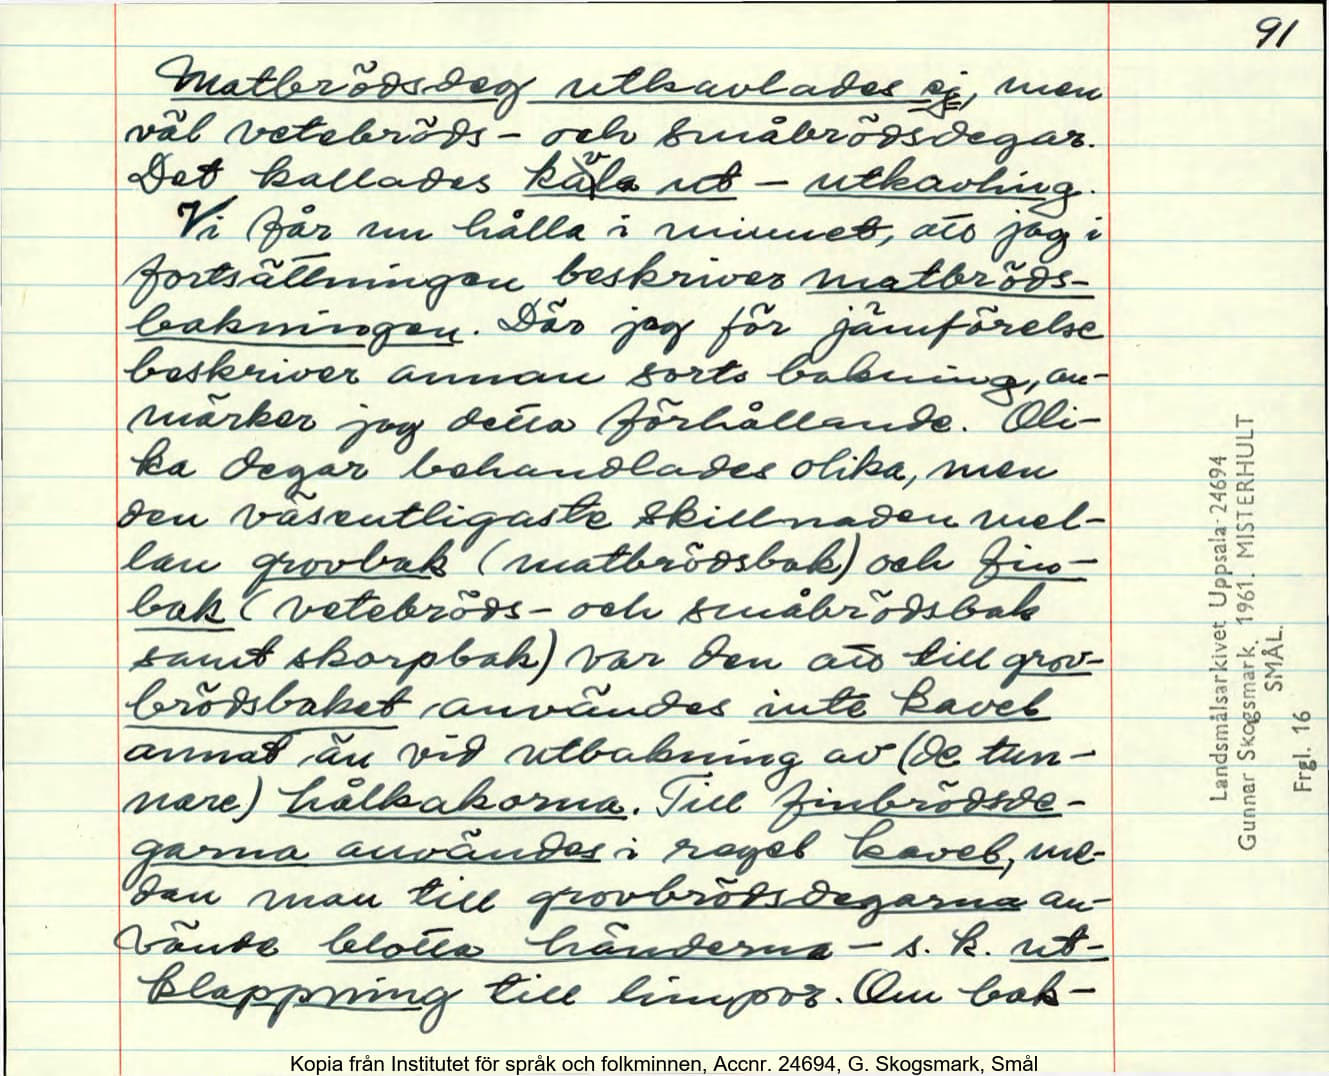 91
Matbrödsdeg utkavlades ej, men
väl vetebröds- och småbrödsdegar.
Det kallades kåvla ut - utkavling.
Vi får nu hålla i minnet, att jag i
fortsättningen beskriver matbröds-
bakningen. Där jag för jämförelse
beskriver annan sorts bakning, an-
märker jag detta förhållande. Oli-
ka degar behandlades olika, men
den väsentligaste skillnaden mel-
lan grovbak (matbrödsbak) och fin-
bak (vetebröds- och småbrödsbak
samt skorpbak) var den att till grov-
brödsbaket användes inte kavel
annat än vid utbakning av (de tun-
nare) hålkakorna. Till finbrödsde-
garna användes i regel kavel, me-
dan man till grovbrödsdegarna an-
vände blotta händerna - s. k. ut-
klappning till limpor. Om bak-
Landsmålsarkivet Uppsala 24694
Gunnar Skogsmark. 1961. MISTERHULT
SMÅL.
Frgl. 16
Kopia från Institutet för språk och folkminnen, Accnr. 24694, G. Skogsmark, Smål